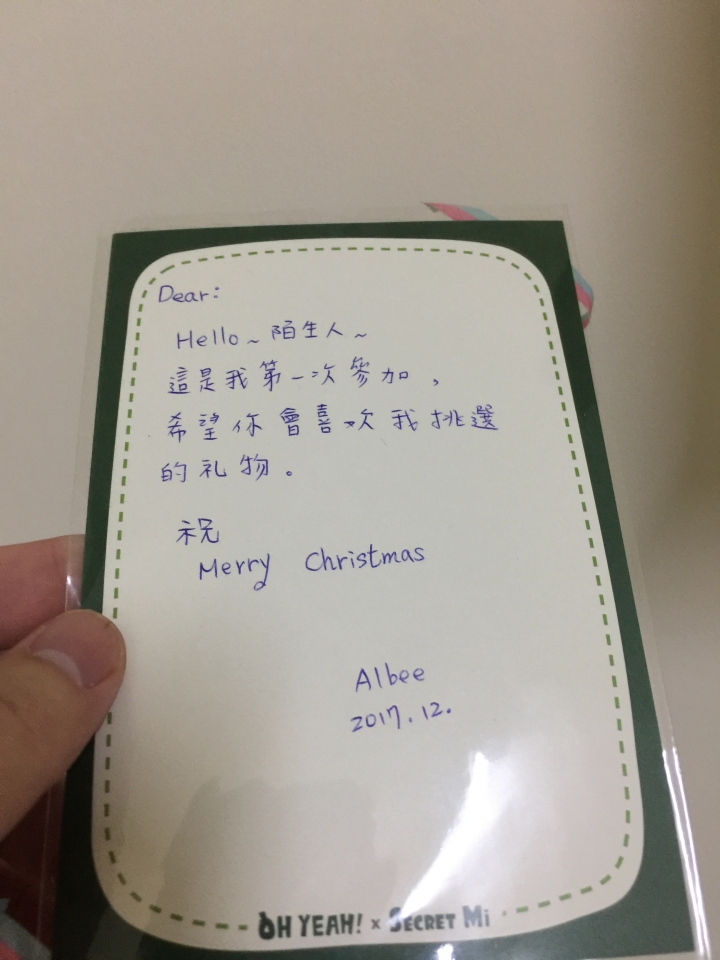 Dear:
Hello~陌生人~
這是我第一次參加，
希望你會喜欢我挑選
的礼物。
祝
Merry Christmas
Albee
2017.12.
OH YEAH! x SECRET Mi